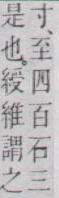 寸、至四百石三
是也。綬維謂之